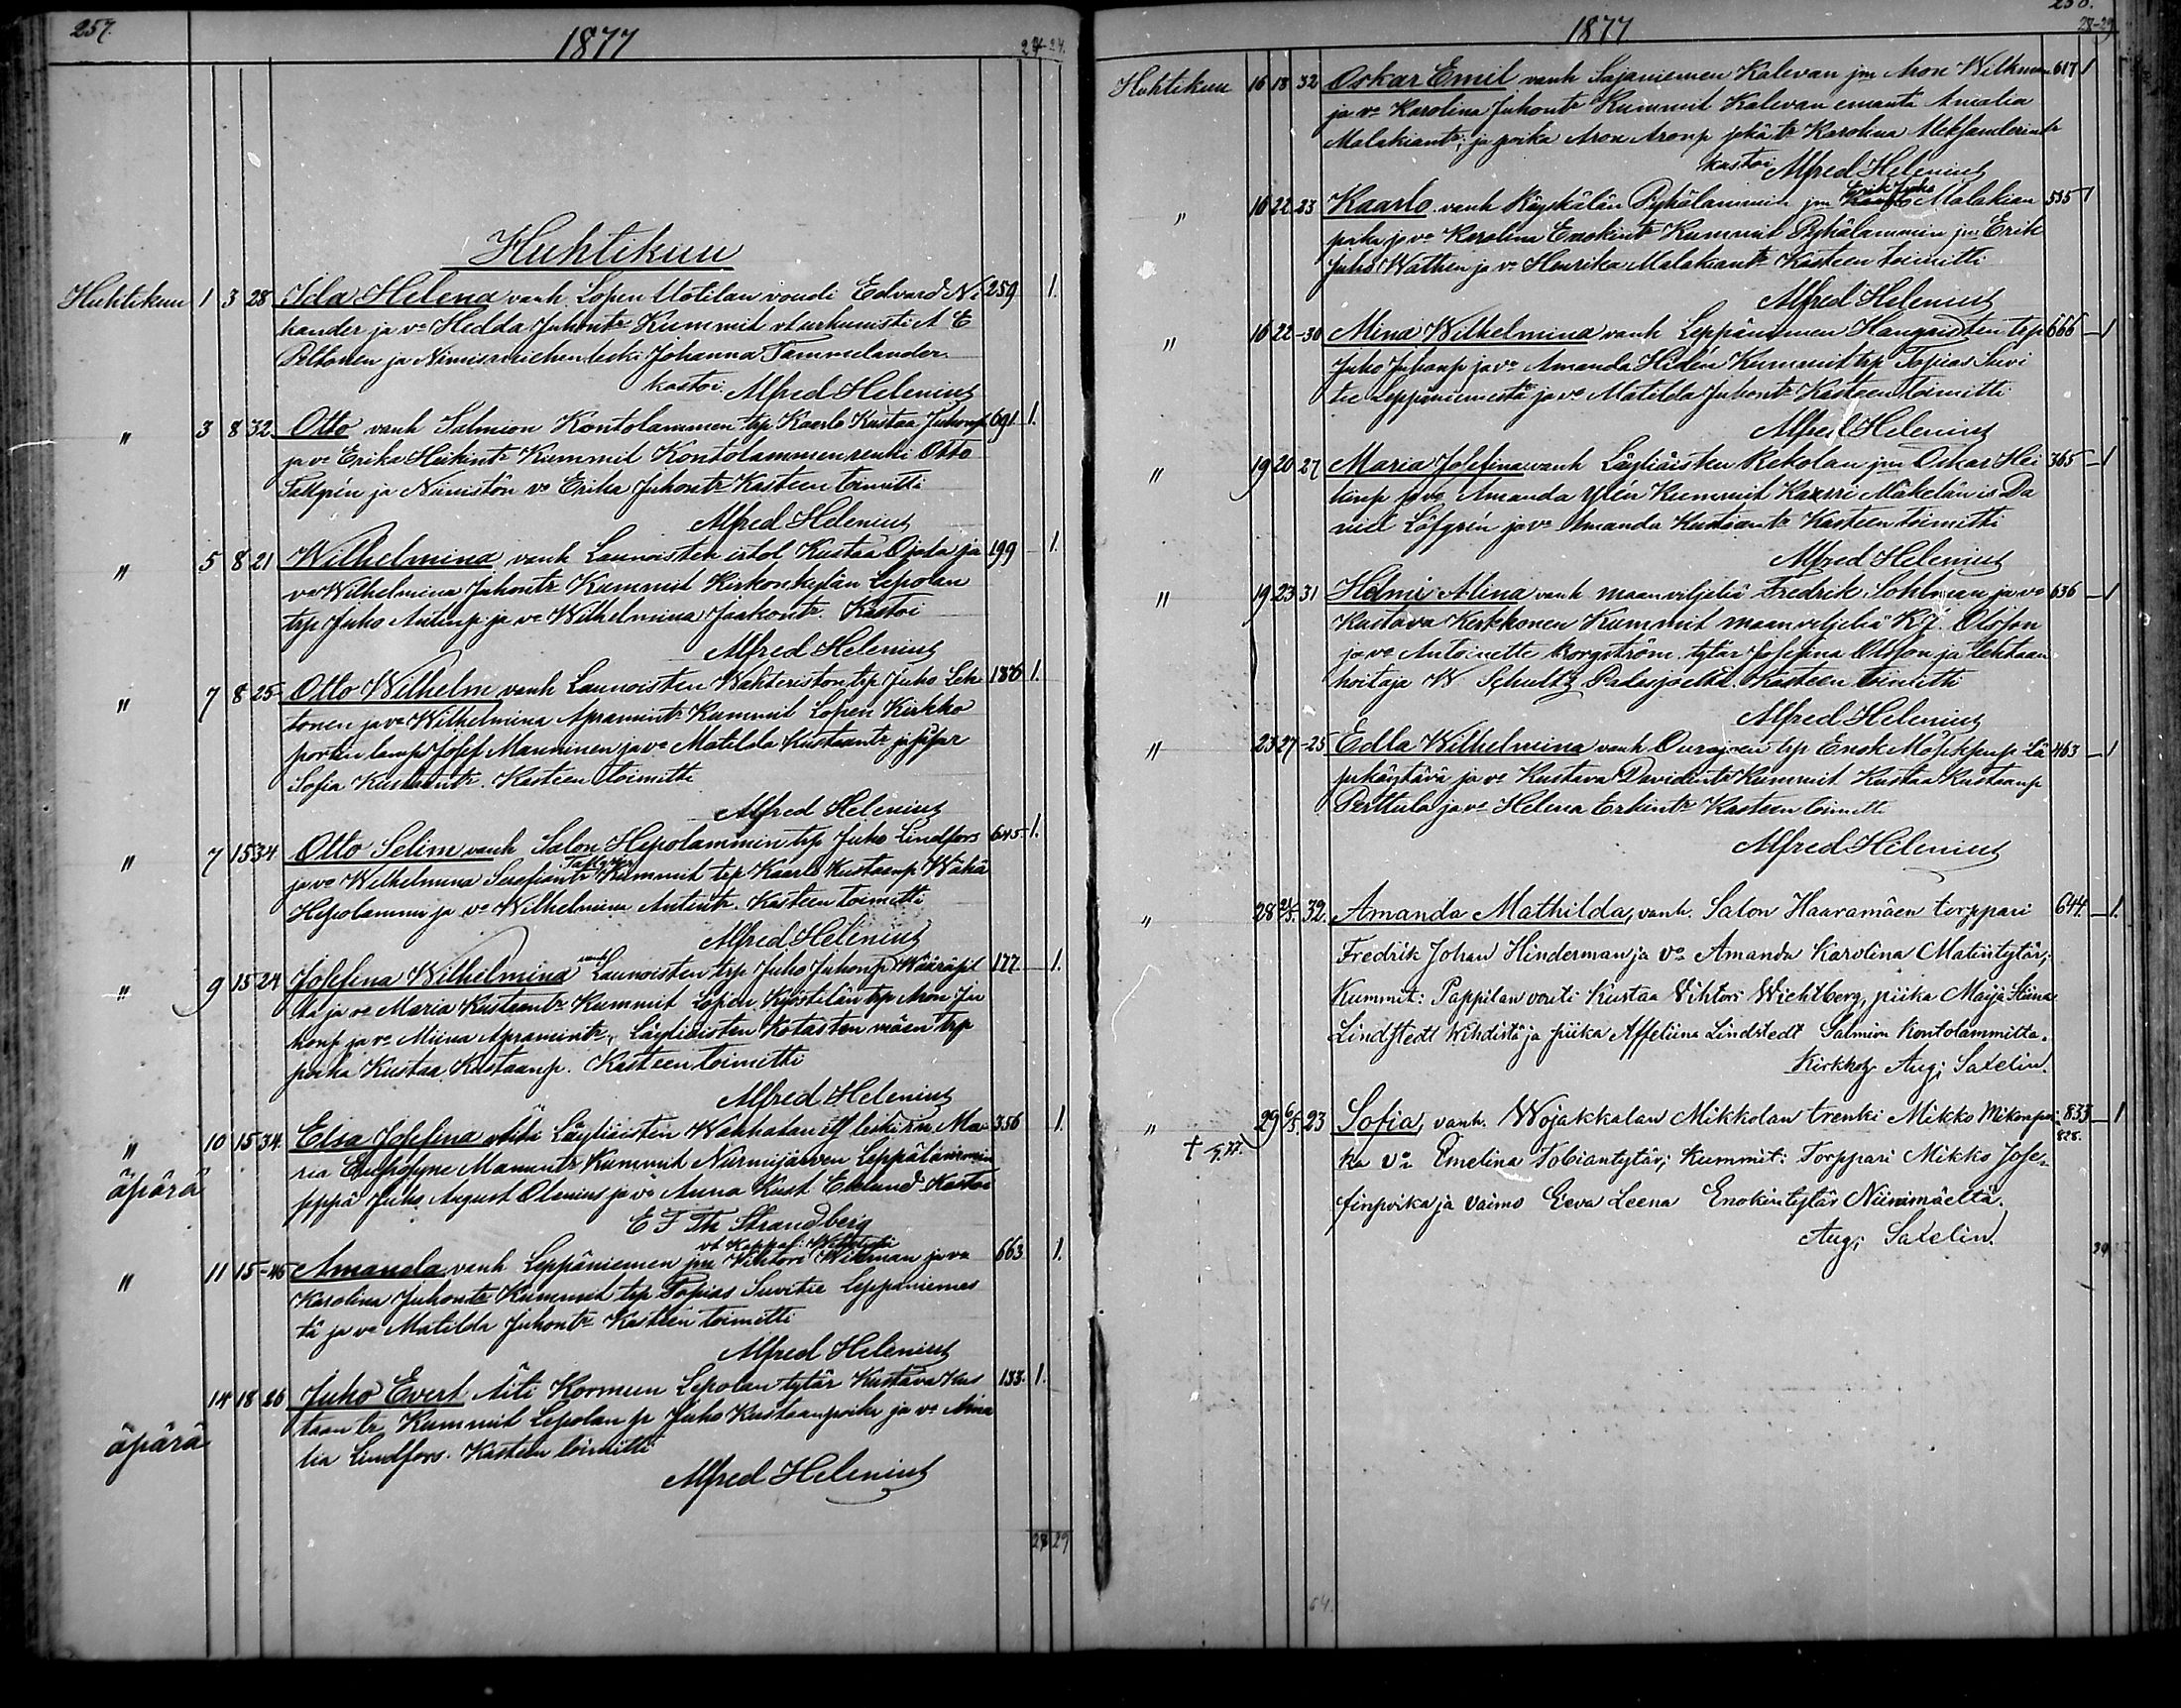 257.
1877
24-24.
Huhtikuu
Huhtikuu 1 3 28 Ida Helena vanh. Lopen Uotilan voudi Edvard Ni 259 1.
hander ja vo Hedda Juhontr Kummit vt urkunisti A E
Peltonen ja Nimismiehen leski Johanna Tammelander.
kastoi Alfred Helenius
" 3 8 32 Otto vanh Salmion Kontolammen trp Kaarlo Kustaa Juhonp 691 1.
ja vo Erika Heikintr Kummit Kontolammen renki Otto
Tallgrén ja Niinistön vo Erika Juhontr Kasteen toimitti
Alfred Helenius
" 5 8 21 Wilhelmina vanh Launoisten istol Kustaa Ojala ja 199 1.
vo Wilhelmina Juhontr Kummit Kirkonkylän Lepolan
trp Juho Antinp ja vo Wilhelmina Jaakontr. Kastoi
Alfred Helenius
" 7 8 25 Otto Wilhelm vanh Launoisten Wahteriston trp Juho Leh 186 1.
tonen ja vo Wilhelmina Apramintr Kummit Lopen Kirkko
portin lamp Josef Manninen ja vo Matilda Kustaantr ja
Sofia Kustaantr. Kasteen toimitti
Alfred Helenius
" 7 15 34 Otto Selim vanh Salon Hepolammin trp Juho Lindfors 645 1.
ja vo Wilhelmina Serafiantr Kummit trp Kaarlo Kustaanp Wähä
Hepolammi ja vo Wilhelmina Antintr. Kasteen toimitti
Alfred Helenius
" 9 15 24 Josefina Wilhelmina vanh Launoisten trp Juho Juhonp Wääräpel 177 1.
to ja vo Maria Kustaantr Kummit Lopen Kyöstilän trp Aron Ju
honp ja vo Miina Apramintr, Läyliäisten Kotaston mäen trp
poika Kustaa Kustaanp. Kasteen toimitti
Alfred Helenius
" 10 15 34 Elsa Josefina äiti Läyliäisten Wakkalan leski Ma 356 1.
äpärä
ria Eufrosyne Manuntr Kummit Nurmijärven Leppälammin
Juho August Olenius ja vo Anna Kust Eklund Kastoi
E F Th Strandberg
vt Kappal:
" 11 15 46 Amanda vanh Leppäniemen jm Wihtori Wikman ja vo 663 1.
Karolina Juhontr Kummit trp Topias Suvitie Leppäniemes
tä ja vo Matilda Juhontr Kasteen toimitti
Alfred Helenius
14 18 26 Juho Evert Äiti Kormun Lepolan tytär Kustava Kus 133. 1.
äpärä
taantr, Kummit Lepolan p Juho Kustaanpoika ja vo Ama
lia Lindfors. Kasteen toimitti
Alfred Helenius
28 29
258.
1877
28-29
Huhtikuu 16 18 32 Oskar Emil vanh Sajaniemen Kalevan jm Aron Wilkman 617 1
ja vo Karolina Juhontr Kummit Kalevan emäntä Amalia
Malakiantr; ja poika Aron Aronp sekä tr Karolina Aleksanderintr
kastoi Alfred Helenius
" 16 22 23 Kaarlo vanh Räyskälän Pyhälammin jm Erik Juho Malakian 535 1
poika ja vo Karolina Enokintr Kummit Pyhälammin jm Erik
Juho Wathen ja vo Henrika Malakiantr Kasteen toimitti
Alfred Helenius
" 16 22 30 Mina Wilhelmina vanh Leppäniemen Hangaisten trp 666 1
Juho Juhonp ja vo Amanda Hidén Kummit trp Topias Suvi
tie Leppäniemestä ja vo Matilda Juhontr Kasteen toimitti
Alfred Helenius
" 19 20 27 Maria Josefina vanh Läyliäisten Rekolan jm Oskar Hei 365 1
kinp ja vo Amanda Ylén Kummit Mäkelän is Da
niel Löfgrén ja vo Amanda Kustaantr Kasteen toimitti
Alfred Helenius
" 19 23 31 Hilma Alina vanh maanviljeliä Fredrik Sohlman ja vo 636 1
Kustava Kerkkonen Kummit maanviljeliä K J Olsson
ja vo Antoinette Borgström, tytär Josefina Olsson ja tehtaan
hoitaja W Schultz Padasjoelta. Kasteen toimitti
Alfred Helenius
" 23 27 25 Edla Wilhelmina vanh Ourajoen trp Enok Mosseksenp Lä 463 1
pikäytävä ja vo Kustava Davidintr Kummit Kustaa Kustaanp
Perttula ja vo Helena Erkintr Kasteen toimitti
Alfred Helenius
" 28 21/5. 32. Amanda Mathilda, vanh. Salon Haaramäen torppari 644. 1.
Fredrik Johan Hinderman ja vo Amanda Karolina Matintytär;
Kummit: Pappilan vouti Kustaa Vihtori Wichtberg, piika Maija Stiina
Lindstedt Wihdistä ja piika Affeliina Lindstedt Salmion Kontolammilta.
Kirkkoh. Aug; Saxelin.
" 29 6/5. 23 Sofia, vanh. Wojakkalan Mikkolan trenki Mikko Mikonpoi- 833 1
828.
† 77.
ka vo Emelina Tobiantytär; Kummit: Torppari Mikko Jose-
finpoika ja vaimo Eeva Leena Enokintytär Niinimäeltä.
Aug; Saxelin.
29
64.